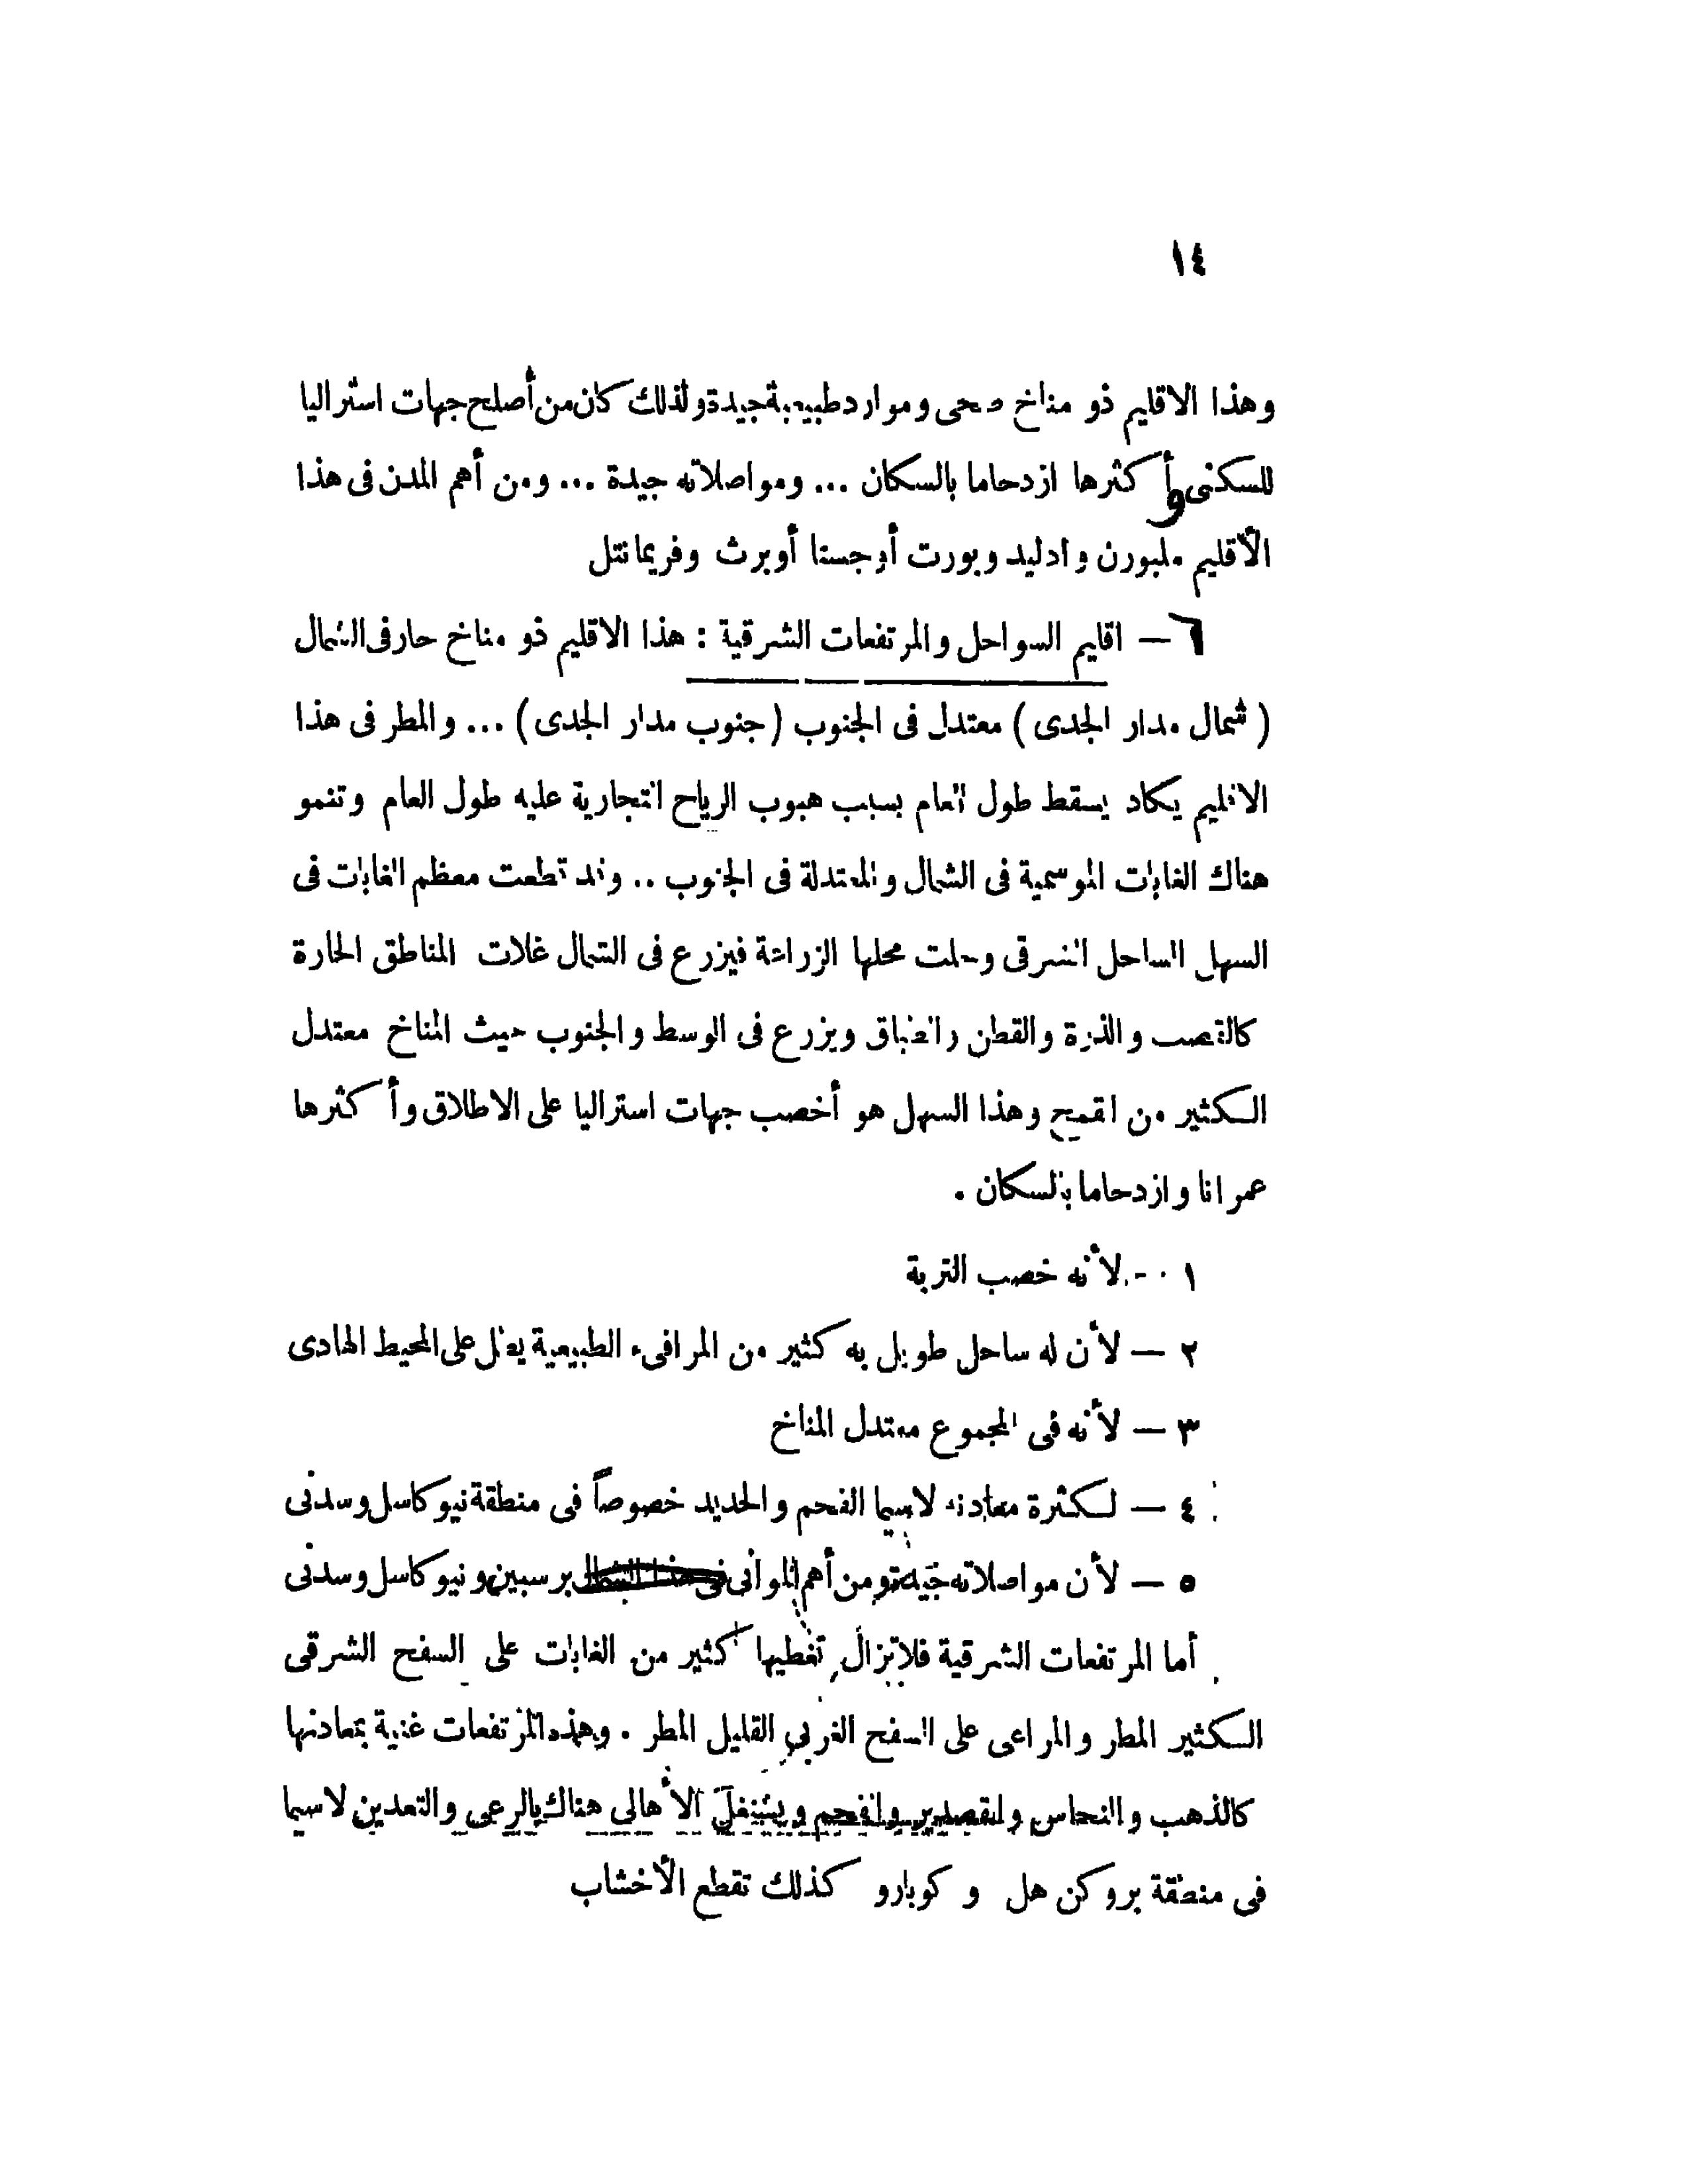 ١٤
وهذا الاقليم ذو مناخ صحى وموارد طبيعية جيدة ولذلك كان من أصلح جهات استراليا
للسكنى وأكثرها ازدحاما بالسكان ... ومواصلاته جيدة ... ومن أهم المدن فى هذا
الأقليم ملبورن وادليد وبورت أوجستا أوبرث وفريمانتل
٦ — اقليم السواحل والمرتفعات الشرقية : هذا الاقليم ذو مناخ حار فى الشمال
( شمال مدار الجدى ) معتدل فى الجنوب ( جنوب مدار الجدى ) ... والمطر فى هذا
الاقليم يكاد يسقط طول العام بسبب هبوب الرياح التجارية عليه طول العام وتنمو
هناك الغابات الموسمية فى الشمال والمعتدلة فى الجنوب .. وقد قطعت معظم الغابات فى
السهل الساحل الشرقى وحلت محلها الزراعة فيزرع فى الشمال غلات المناطق الحارة
كالقصب والذرة والقطن والطباق ويزرع فى الوسط والجنوب حيث المناخ معتدل
الكثير من القمح وهذا السهل هو أخصب جهات استراليا على الاطلاق وأكثرها
عمرانا وازدحاما بالسكان .
١ — لأنه خصب التربة
٢ — لأن له ساحل طويل به كثير من المرافىء الطبيعية يطل على المحيط الهادى
٣ — لأنه فى المجموع معتدل المناخ
٤ — لكثرة معادنه لاسيما الفحم والحديد خصوصاً فى منطقة نيوكاسل وسدنى
٥ — لأن مواصلاته جيدة ومن أهم الموانى برسبين ونيوكاسل وسدنى
أما المرتفعات الشرقية فلا تزال تغطيها كثير من الغابات على السفح الشرقى
الكثير المطر والمراعى على السفح الغربى القليل المطر . وهذه المرتفعات غنية بمعادنها
كالذهب والنحاس والقصدير والفحم ويشتغل الأهالى هناك بالرعى والتعدين لاسيما
فى منطقة بروكن هل و كوبارو كذلك تقطع الأخشاب